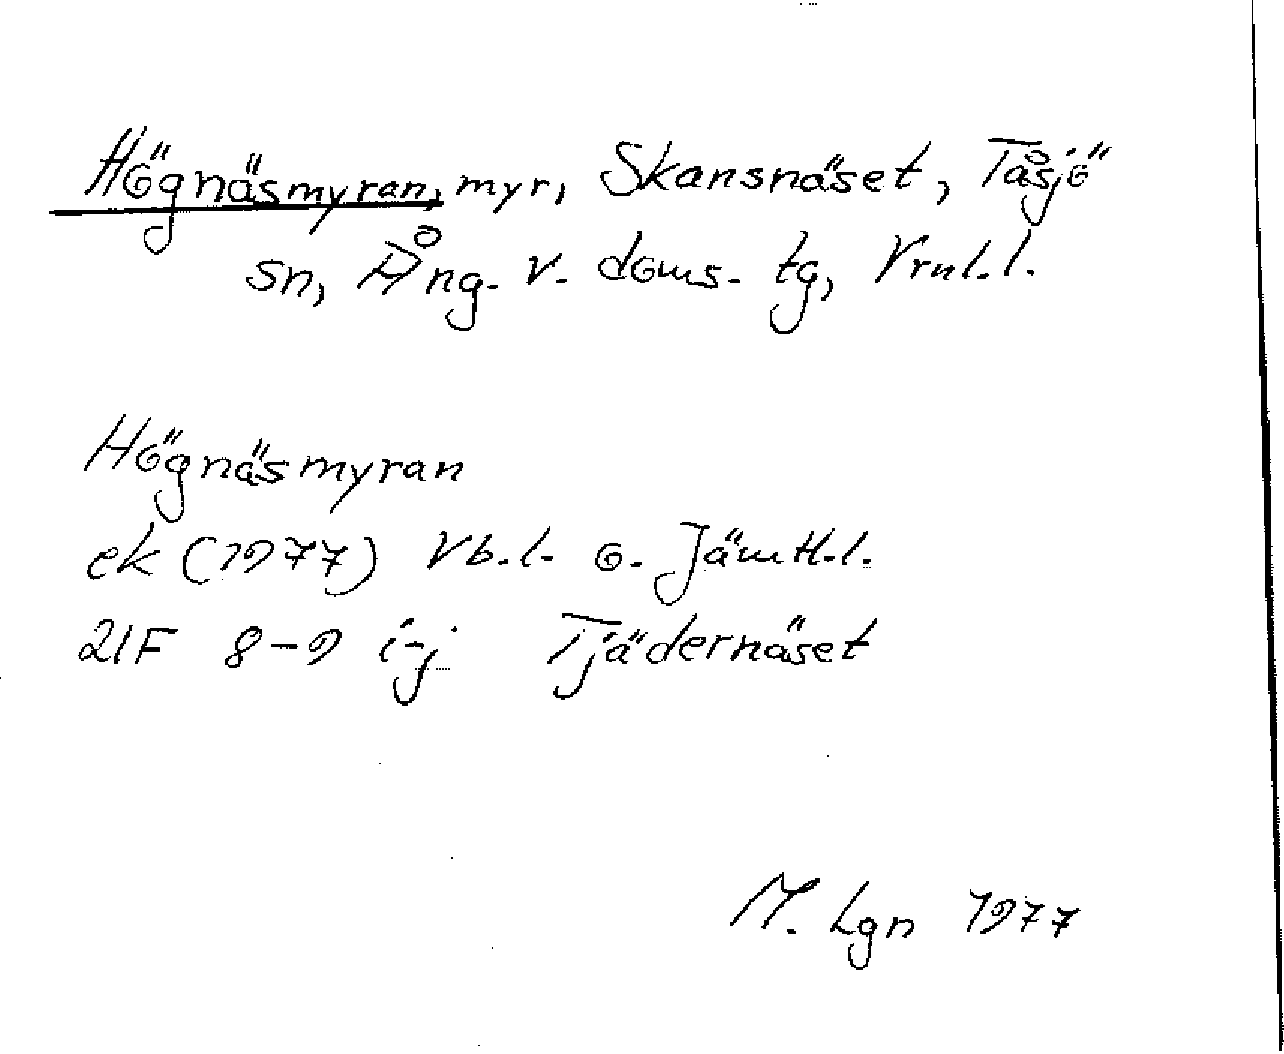 Högnäsmyran, myr, Skansnäset, Tåsjö
sn, Ång. v. doms. tg, Vrnl. l.
Högnäsmyran
ek (1977) Vb. l. o. Jämtl. l.
21F 8-9 i-j Tjädernäset
M. Lgn 1977